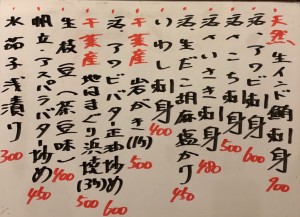 天然 生インド鮪刺身 900
活、アワビ刺身 600
活、こち刺身 500
活、いさき刺身 480
活、生だこ胡麻塩かり 450
いわし刺身 400
千葉産 岩がき(1ケ) 500
活、アワビバター正油炒め 600
千葉産 地はまぐり浜焼(3ケ) 500
生枝豆(茶豆味) 400
帆立アスパラバター炒め 450
水茄子浅漬り 300